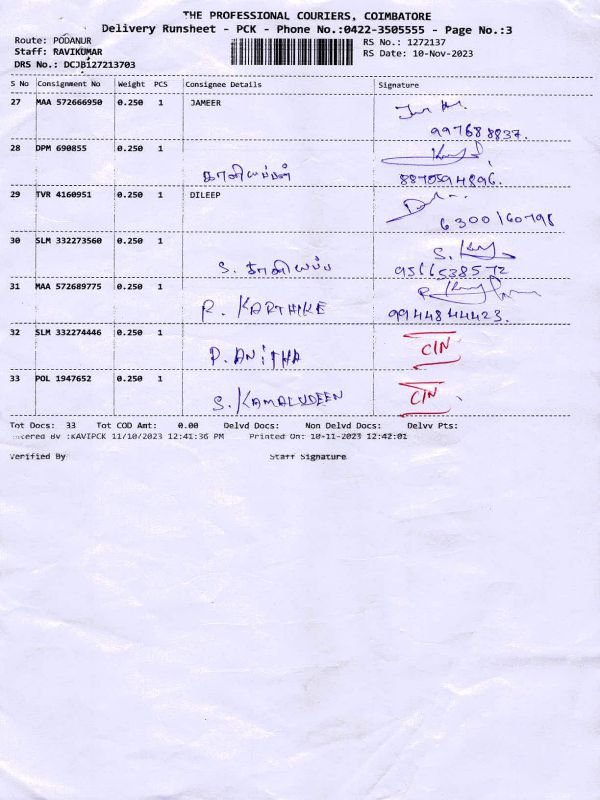 THE PROFESSIONAL COURIERS, COIMBATORE
Delivery Runsheet - PCK - Phone No.:0422-3505555 - Page No.:3
Route: PODANUR
RS No.: 1272137
Staff: RAVIKUMAR
RS Date: 10-Nov-2023
DRS No.: DCJB127213703
S No Consignment No Weight PCS Consignee Details Signature
27 MAA 572666950 0.250 1 JAMEER
997688837.
28 DPM 690855 0.250 1
8870594896.
29 TVR 4160951 0.250 1 DILEEP
6300160798
30 SLM 332273560 0.250 1
S.
9566538572
31 MAA 572689775 0.250 1
R. KARTHIKE
9944844423.
32 SLM 332274446 0.250 1
P. ANITHA C/N
33 POL 1947652 0.250 1
S. KAMALUDEEN C/N
Tot Docs: 33 Tot COD Amt: 0.00 Delvd Docs: Non Delvd Docs: Delvv Pts:
Entered By :KAVIPCK 11/10/2023 12:41:36 PM Printed On: 10-11-2023 12:42:01
Verified By Staff Signature